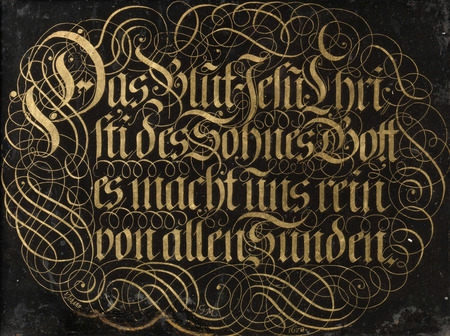 Das Blut Jesu Chri-
sti des Sohnes Gott
es macht uns rein
von allen Sunden.